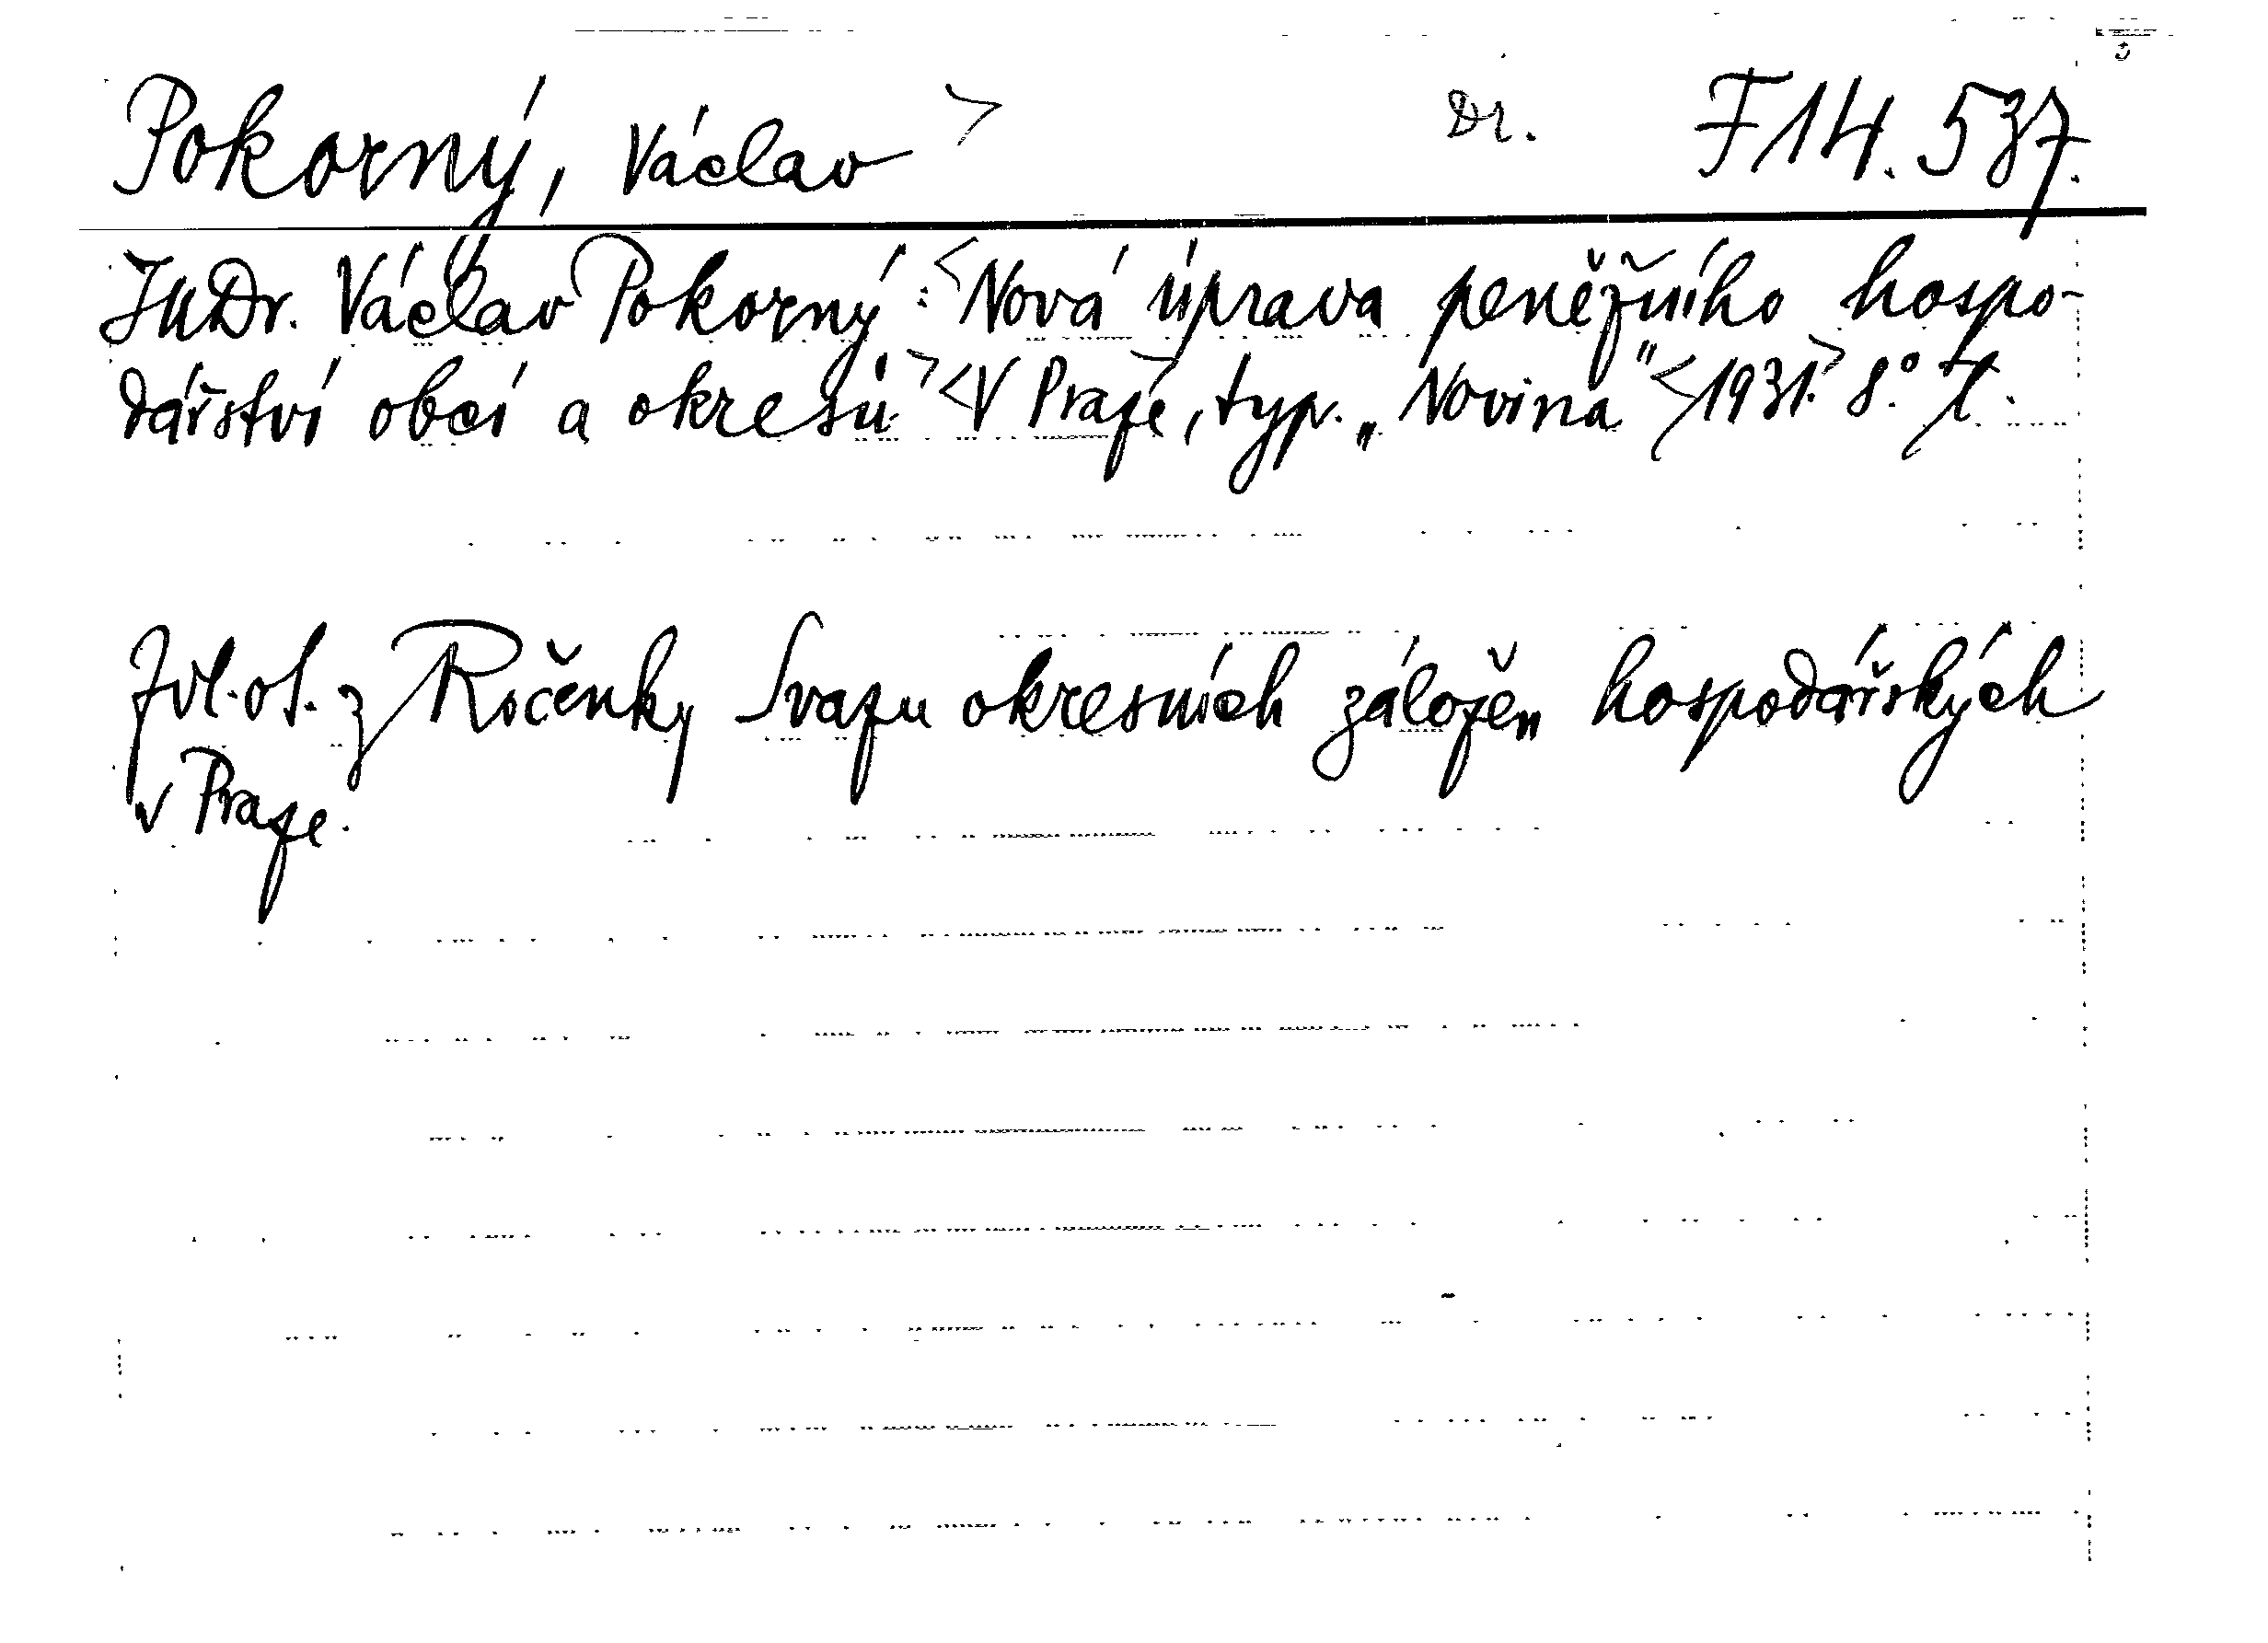 Pokorný, Václav > Dr. F 14.537.
JUDr. Václav Pokorný: <Nová úprava peněžního hospo-
dářství obcí a okresů> <V Praze, typ. „Novina" <1931.> 8°.
Zvl. ot. z Ročenky Svazu okresních záložen hospodářských
v Praze.